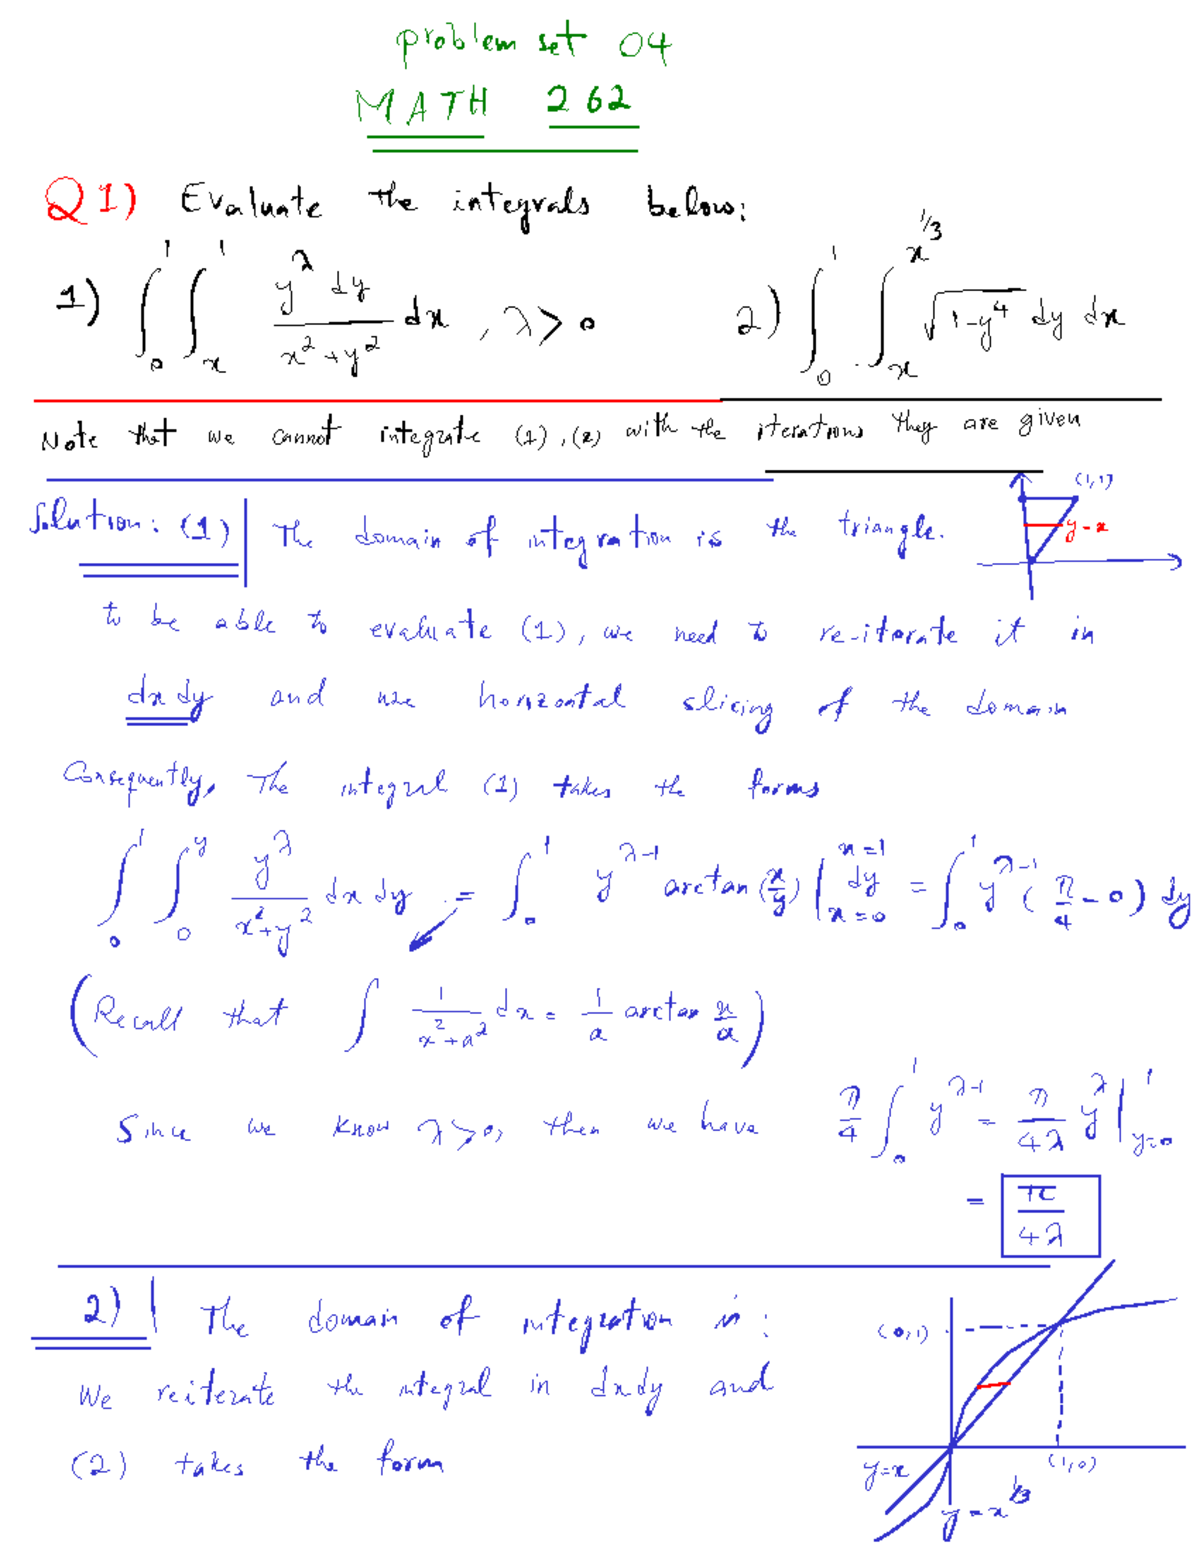 problem set 04
MATH 262
Q1) Evaluate the integrals below:
1) ∫_0^1 ∫_x^1 y^λ dy / (x^2+y^2) dx , λ > 0    2) ∫_0^1 ∫_x^{x^{1/3}} √(1-y^4) dy dx
Note that we cannot integrate (1), (2) with the iterations they are given
Solution: (1) | The domain of integration is the triangle.
(1,1)
y=x
to be able to evaluate (1), we need to re-iterate it in
dx dy and use horizontal slicing of the domain
Consequently, The integral (1) takes the forms
∫_0^1 ∫_0^y y^λ / (x^2+y^2) dx dy = ∫_0^1 y^{λ-1} arctan(x/y) |_{x=0}^{x=1} dy = ∫_0^1 y^{λ-1} (π/4 - 0) dy
(Recall that ∫ 1/(x^2+a^2) dx = 1/a arctan x/a)
Since we know λ>0, then we have π/4 ∫_0^1 y^{λ-1} = π/4λ y^λ |_{y=0}^1
= π/4λ
2) | The domain of integration is:
(0,1)
We reiterate the integral in dxdy and
(2) takes the form
y=x
(1,0)
y=x^{1/3}